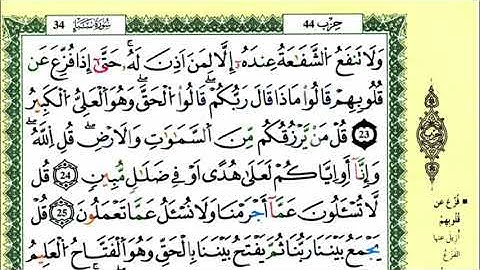 34 سُورَةُ سَبَإٍ
حِزْب 44
وَلَا تَنفَعُ الشَّفَٰعَةُ عِندَهُۥٓ إِلَّا لِمَنْ أَذِنَ لَهُۥ ۚ حَتَّىٰٓ إِذَا فُزِّعَ عَن
قُلُوبِهِمْ قَالُوا۟ مَاذَا قَالَ رَبُّكُمْ ۖ قَالُوا۟ الْحَقَّ ۖ وَهُوَ الْعَلِىُّ الْكَبِيرُ
23 قُلْ مَن يَرْزُقُكُم مِّنَ السَّمَٰوَٰتِ وَالْأَرْضِ ۖ قُلِ اللَّهُ ۖ
وَإِنَّآ أَوْ إِيَّاكُمْ لَعَلَىٰ هُدًى أَوْ فِى ضَلَٰلٍ مُّبِينٍ 24 قُل
لَّا تُسْـَٔلُونَ عَمَّآ أَجْرَمْنَا وَلَا نُسْـَٔلُ عَمَّا تَعْمَلُونَ 25 قُلْ
يَجْمَعُ بَيْنَنَا رَبُّنَا ثُمَّ يَفْتَحُ بَيْنَنَا بِالْحَقِّ وَهُوَ الْفَتَّاحُ الْعَلِيمُ
فُزِّعَ عن
قُلُوبِهِمْ
أزيل عنها
الفَزَعُ